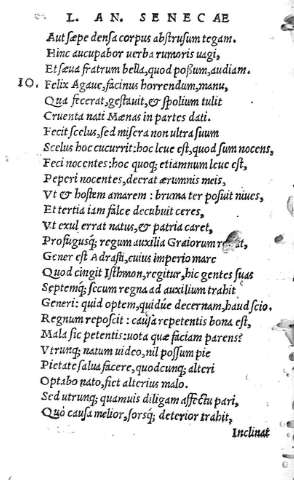 L. AN. SENECAE
Aut sæpe densa corpus abstrusum tegam.
Hinc aucupabor uerba rumoris uagi,
Et sæua fratrum bella, quod poßum, audiam.
IO. Felix Agaue, facinus horrendum, manu,
Qua fecerat, gestauit, & spolium tulit
Cruenta nati Mænas in partes dati.
Fecit scelus, sed misera non ultra suum
Scelus hoc cucurrit: hoc leue est, quod sum nocens,
Feci nocentes: hoc quoq; etiamnum leue est,
Peperi nocentes, decrat ærumnis meis,
Vt & hostem amarem: bruma ter posuit niues,
Et tertia iam falce decubuit ceres,
Vt exul errat natus, & patria caret,
Profugusq; regum auxilia Graiorum rogat,
Gener est Adrasti, cuius imperio mare
Quod cingit Isthmon, regitur, hic gentes suas
Septemq; secum regna ad auxilium trahit
Generi: quid optem, quidúe decernam, haud scio.
Regnum reposcit: causa repetentis bona est,
Mala sic petentis: uota quæ faciam parens?
Vtrunq; natum uideo, nil possum pie
Pietate salua facere, quodcunq; alteri
Optabo nato, fiet alterius malo.
Sed utrunq; quamuis diligam affectu pari,
Quò causa melior, sorsq; deterior trahit,
Inclinat